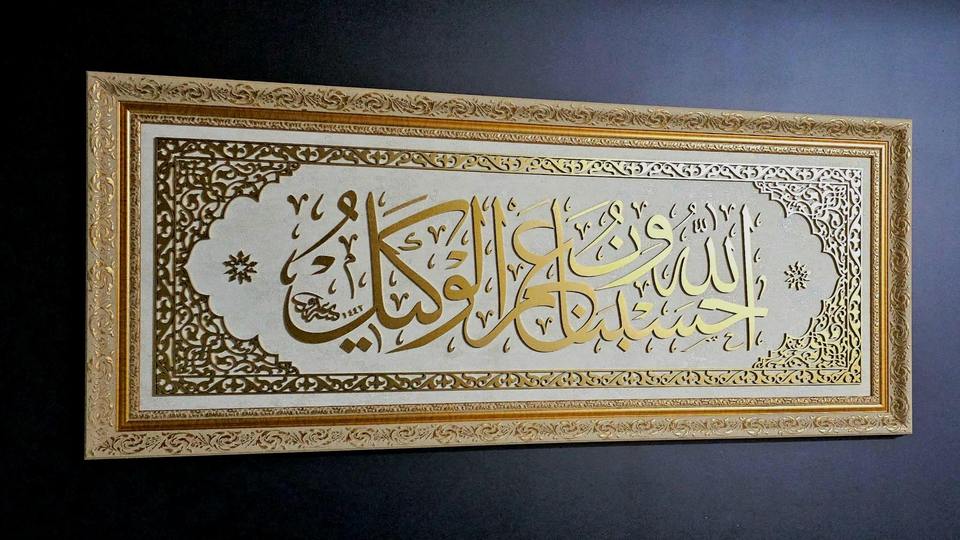 حسبنا الله ونعم الوكيل
١٤٤٢